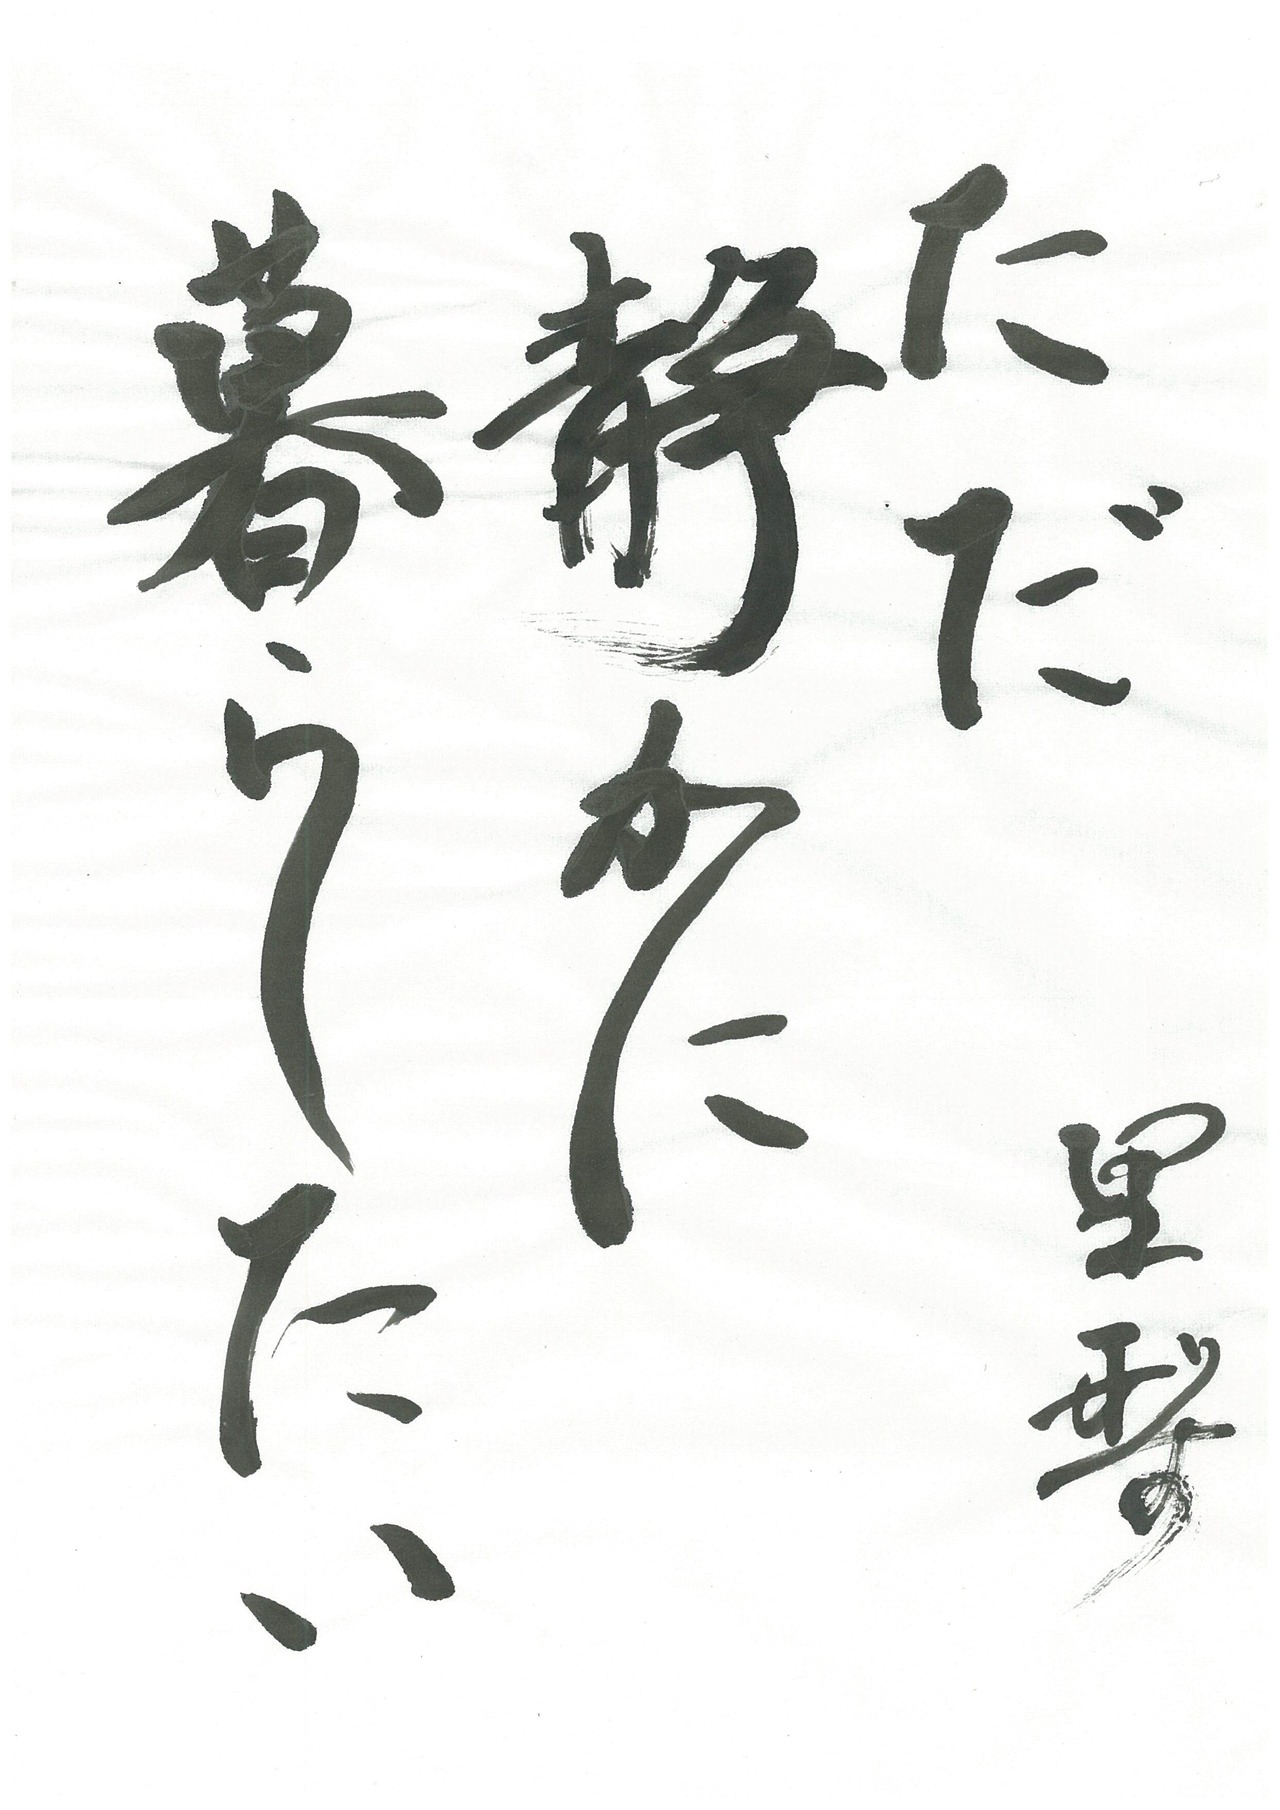 ただ
静かに
暮らしたい
里琴